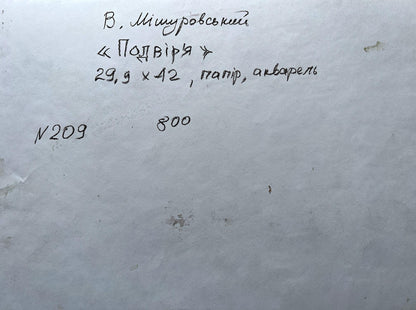 В. Мішуровський
« Подвір'я »
29,9 х 42, папір, акварель
N209 800